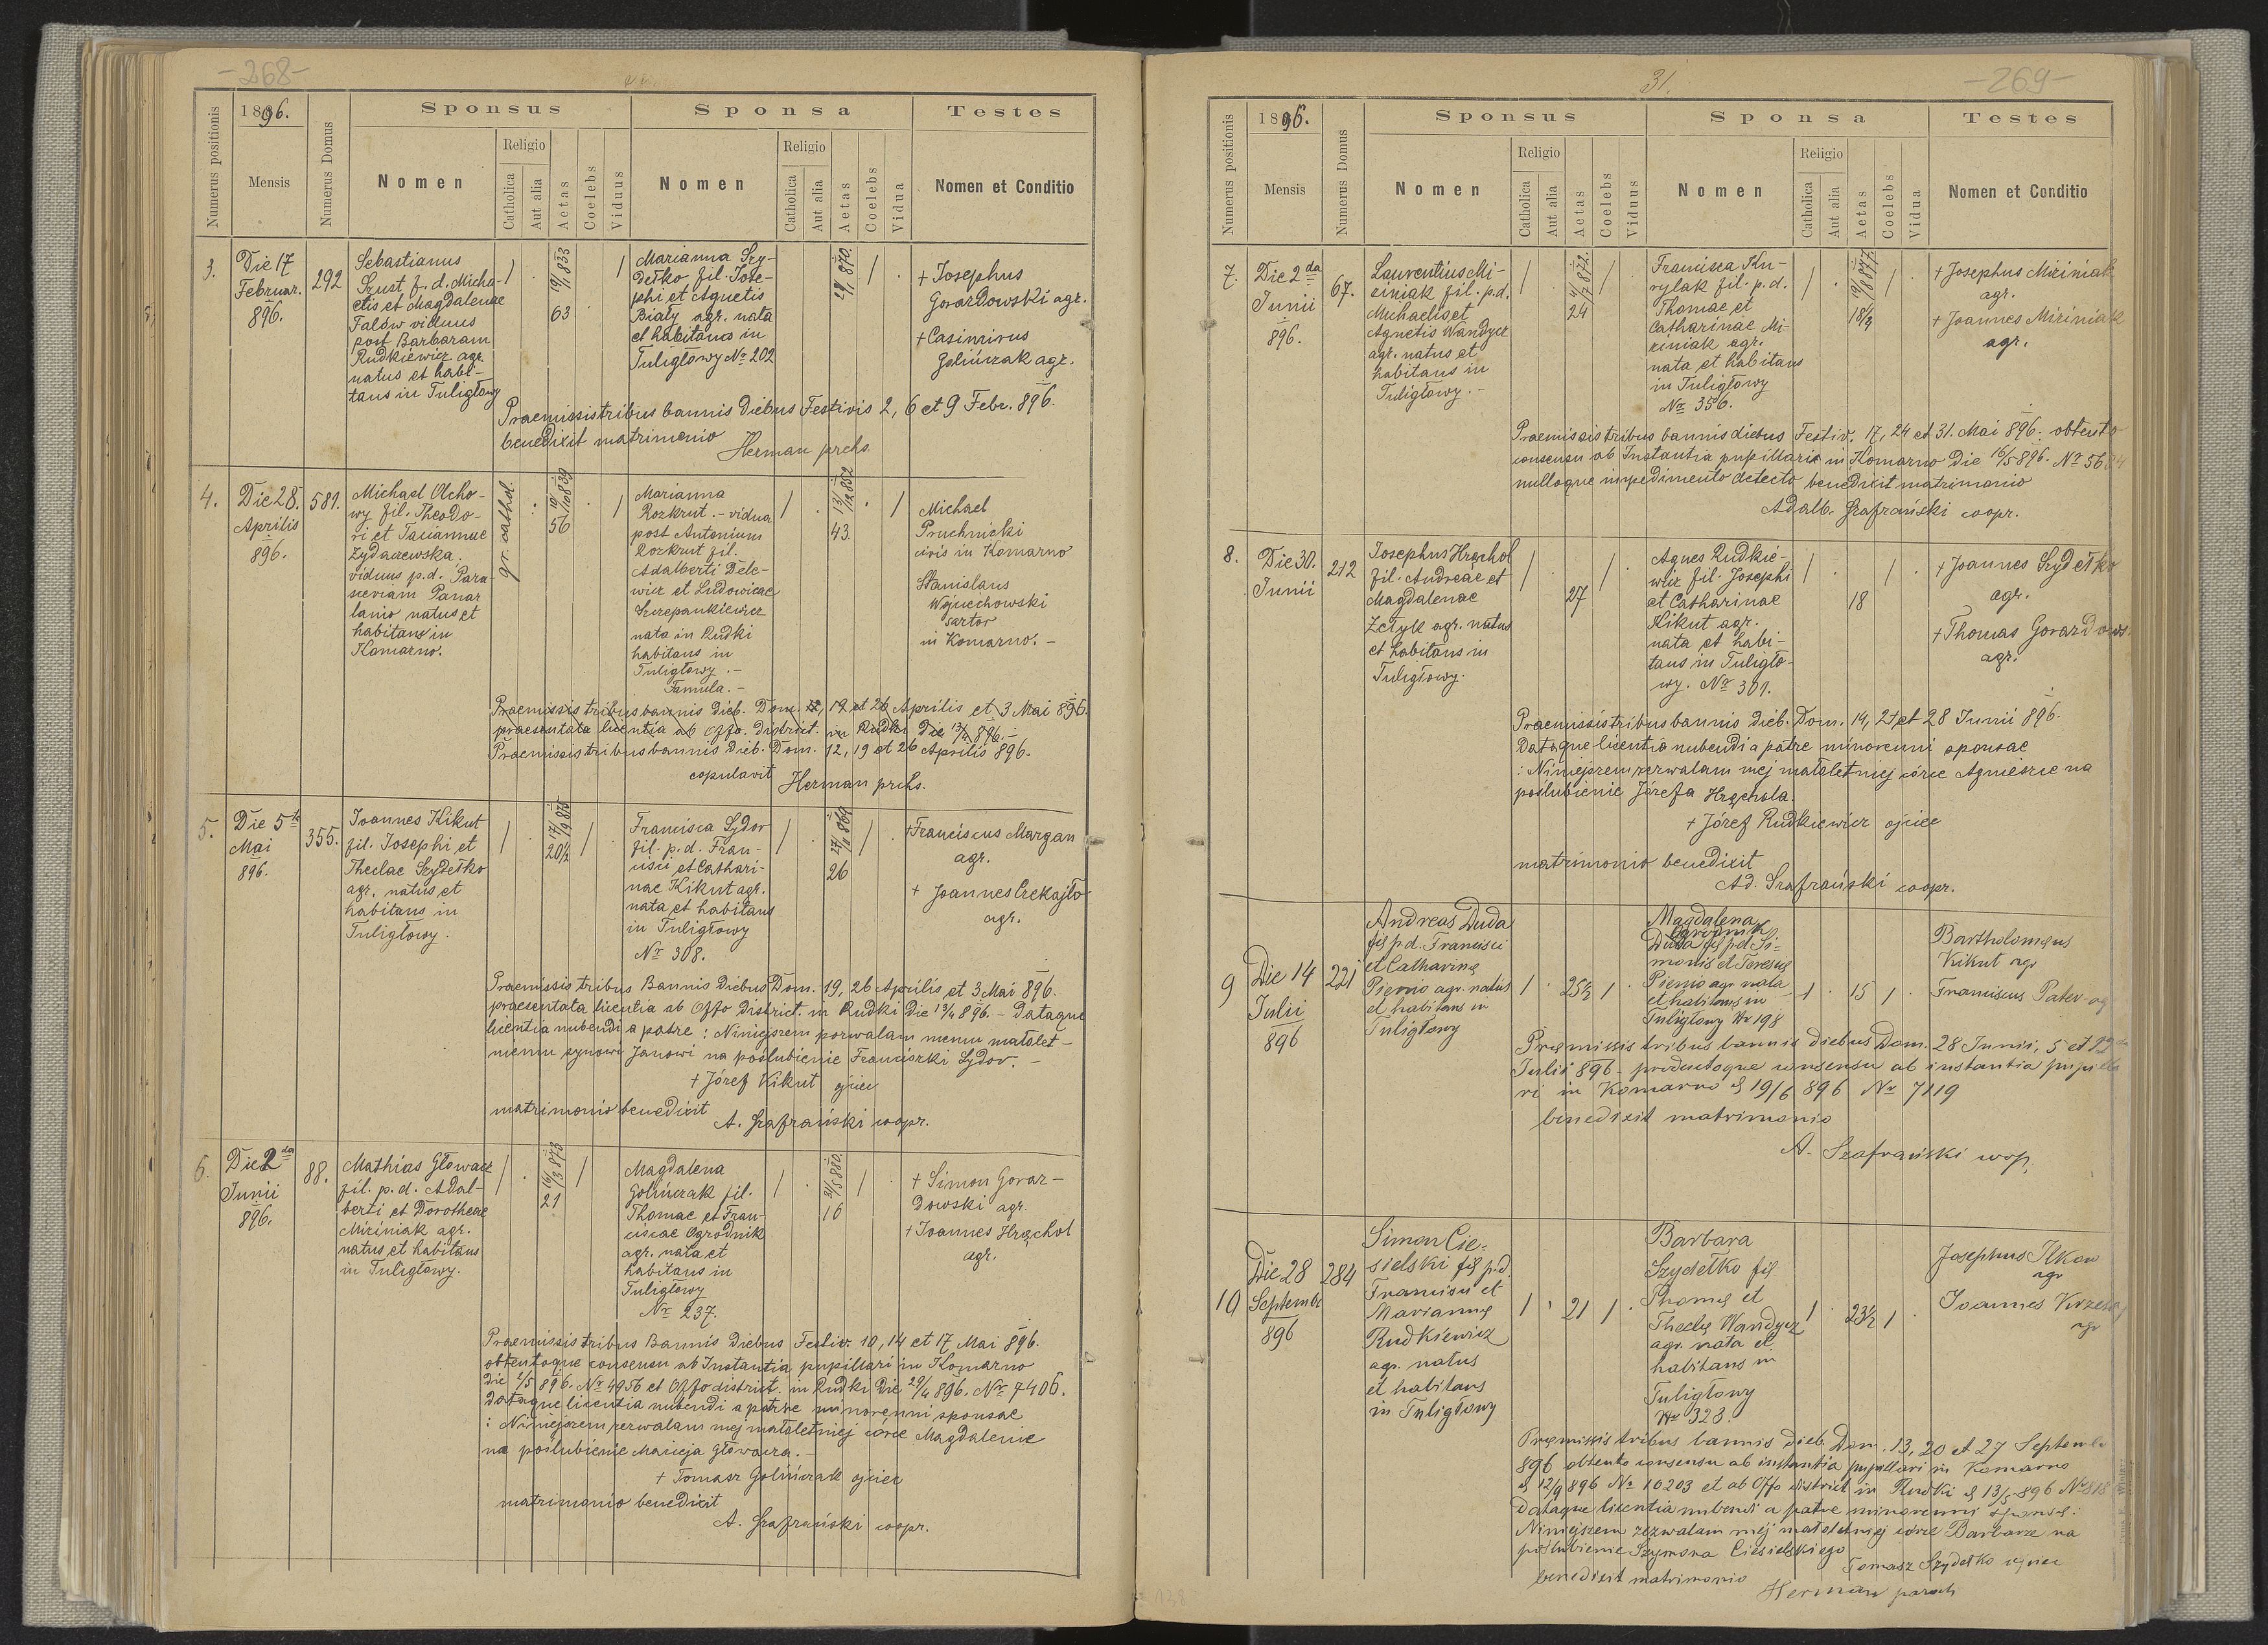 -268-
Numerus positionis
1896.
Mensis
Numerus Domus
Sponsus
Nomen
Religio
Catholica
Aut alia
Aetas
Coelebs
Viduus
Sponsa
Nomen
Religio
Catholica
Aut alia
Aetas
Coelebs
Vidua
Testes
Nomen et Conditio
3.
Die 17
Februar.
896.
292
Sebastianus
Szust f. d. Micha-
elis et Magdalenae
Falów viduus
post Barbaram
Rudkiewicz agr.
natus et habi-
tans in Tuligłowy
63
Marianna Szy-
dełko fil. Jose-
phi et Agnetis
Biały agr. nata
et habitans in
Tuligłowy Nr 202
+ Josephus
Gorazdowski agr.
+ Casimirus
Golińczak agr.
Praemissis tribus bannis diebus Festivis 2, 6 et 9 Febr. 896.
benedixit matrimonio
Herman prchs.
4.
Die 28.
Aprilis
896.
581.
Michael Olcho-
wy fil. Theodo-
ri et Taciannae
Zydaczewska.
viduus p.d. Para-
sceviam Panas
lanio natus et
habitans in
Komarno.
gr. cathol.
19/10 839
56
Marianna
Rozkrut. - vidua
post Antonium
Rozkrut fil.
Adalberti Dele-
wicz et Ludowicae
Szczepankiewicz
nata in Rudki
habitans in
Tuligłowy. -
Famula. -
13/12 852
43.
Michael
Pruchnicki
civis in Komarno
Stanislaus
Wojciechowski
sartor
in Komarno. -
Praemissis tribus bannis dieb. Dom. 12, 19 et 26 Aprilis et 3 Mai 896.
praesentata licentia ab Offo. district. in Rudki die 13/4 896. -
Praemissis tribus bannis dieb. Dom. 12, 19 et 26 Aprilis 896.
copulavit Herman prchs.
5.
Die 5ta
Mai
896.
355.
Joannes Kikut
fil. Josephi et
Theclae Szydełko
agr. natus et
habitans in
Tuligłowy.
17/9 875
20½
Francisca Sydor
fil. p.d. Fran-
cisci et Cathari-
nae Kikut agr.
nata et habitans
in Tuligłowy
Nr 308.
26
+ Franciscus Margan
agr.
+ Joannes Czekajło
agr.
Praemissis tribus Bannis Diebus Dom. 19, 26 Aprilis et 3 Mai 896.
praesentata licentia ab Offo district. in Rudki die 13/4 896. - Dataque
licentia nubendi a patre: Niniejszem pozwalam memu małolet-
niemu synowi Janowi na poślubienie Franciszki Sydor. -
+ Józef Kikut ojciec
matrimonio benedixit
A. Szafrański coopr.
6.
Die 2da
Junii
896.
88.
Mathias Głowacz
fil. p.d. Adal-
berti et Dorotheae
Miziniak agr.
natus et habitans
in Tuligłowy.
16/3 873
21
Magdalena
Golińczak fil.
Thomae et Fran-
ciscae Ogrodnik
agr. nata et
habitans in
Tuligłowy
Nr 237.
31/5 880.
16
+ Simon Goraz-
dowski agr.
+ Joannes Hrąchol
agr.
Praemissis tribus Bannis Diebus Festiv. 10, 14 et 17 Mai 896.
obtentoque consensu ab Instantia pupillari in Komarno
die 2/5 896. Nr 4956 et Offo district. in Rudki die 29/4 896. Nr 7406.
dataque licentia nubendi a patre minorenni sponsae
: Niniejszem zezwalam mej małoletniej córce Magdalenie
na poślubienie Macieja Głowacza. -
+ Tomasz Golińczak ojciec
matrimonio benedixit
A. Szafrański coopr.
31.
-269-
Numerus positionis
1896.
Mensis
Numerus Domus
Sponsus
Nomen
Religio
Catholica
Aut alia
Aetas
Coelebs
Viduus
Sponsa
Nomen
Religio
Catholica
Aut alia
Aetas
Coelebs
Vidua
Testes
Nomen et Conditio
7.
Die 2da
Junii
896.
67.
Laurentius Mi-
ziniak fil. p.d.
Michaelis et
Agnetis Wandycz
agr. natus et
habitans in
Tuligłowy. -
24
Francisca Ku-
rylak fil. p.d.
Thomae et
Catharinae Mi-
ziniak agr.
nata et habitans
in Tuligłowy
Nr 356.
+ Josephus Miziniak
agr.
+ Joannes Miziniak
agr.
Praemissis tribus bannis diebus Festiv. 17, 24 et 31. Mai 896: obtento
consensu ab Instantia pupillari in Komarno die 16/5 896. Nr 5684
nulloque impedimento detecto benedixit matrimonio
Adalb. Szafrański coopr.
8.
Die 30.
Junii
212
Josephus Hrąchol
fil. Andreae et
Magdalenae
Zetyk agr. natus
et habitans in
Tuligłowy.
27
Agnes Rudkie-
wicz fil. Josephi
et Catharinae
Kikut agr.
nata et habi-
tans in Tuligło-
wy. Nr 301.
18
+ Joannes Szydełko
agr.
+ Thomas Gorazdows
agr.
Praemissis tribus bannis dieb. Dom. 14, 21 et 28 Junii 896.
Dataque licentia nubendi a patre minorenni sponsae
: Niniejszem zezwalam mej małoletniej córce Agnieszce na
poślubienie Józefa Hrąchola.
+ Józef Rudkiewicz ojciec
matrimonio benedixit
Ad. Szafrański coopr.
9
Die 14
Julii
896
221
Andreas Duda
fil p.d. Francisci
et Catharinę
Pierno agr. natus
et habitans in
Tuligłowy
25½
Magdalena
Ogrodnik
Duda fil p.d. Si-
monis et Teresię
Pierno agr nata
et habitans in
Tuligłowy Nr 198
15
Bartholomeus
Kikut agr
Franciscus Pater ag
Pręmissis tribus bannis diebus Dom. 28 Junii, 5 et 12
Julii 896 - productoque consensu ab instantia pupilla
ri in Komarno d 19/6 896 Nr 7119
benedixit matrimonio
A. Szafrański coop.
10
Die 28
Septembr
896
284
Simon Cie-
sielski fil p.d
Francisci et
Mariannę
Rudkiewicz
agr. natus
et habitans
in Tuligłowy
21
Barbara
Szydełko fil
Thomę et
Theclę Wandycz
agr. nata et
habitans in
Tuligłowy
Nr 323.
23½
Josephus Ilkow
agr
Joannes
agr
Pręmissis tribus bannis dieb. Dom. 13, 20 et 27 Septemb
896 obtento consensu ab instantia pupillari in Komarno
d 12/9 896 Nr 10203 et ab Offo district in Rudki d 13/5 896
Dataque licentia nubendi a patre minorenni sponsę:
Niniejszem zezwalam mej małoletniej córce Barbarze na
poślubienie Szymona Ciesielskiego
Tomasz Szydełko ojciec
benedixit matrimonio
Herman paroch